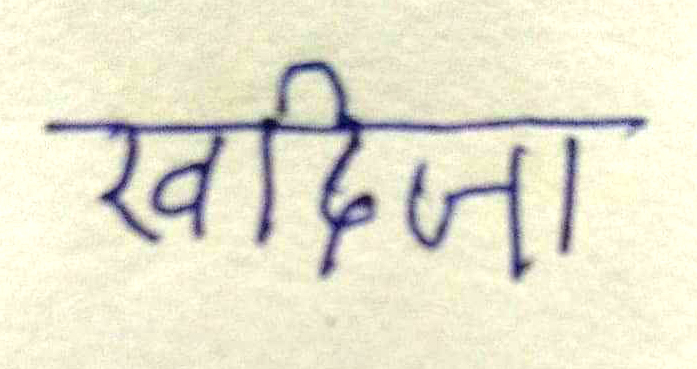 खदिजा